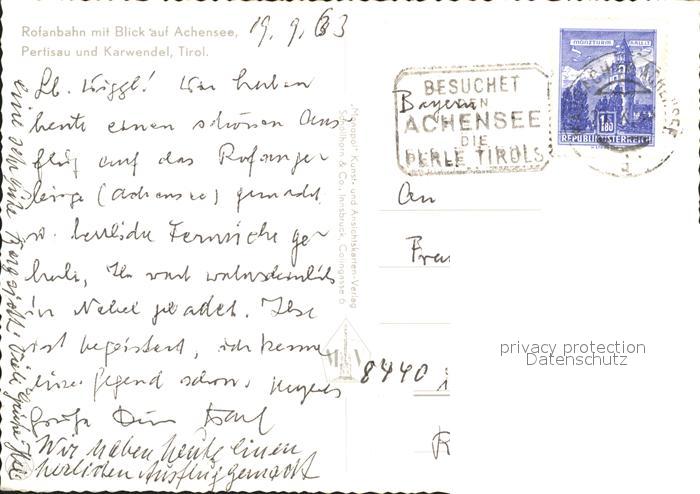 Rofanbahn mit Blick auf Achensee,
Pertisau und Karwendel, Tirol.
19.9.63
Lb. Wiggl! Wir haben
heute einen schönen Aus
flug auf das Rofange
birge (Achensee) gemacht
u. herrliche Fernsicht ge
habt, Ihr wart wahrscheinlich
in Nebel gebadet. Ilse
ist begeistert, ich kenne
diese Gegend schon.
Grüße Dein
Wir haben heute einen
herrlichen Ausflug gemacht
eine schöne Bergsicht. Viele Grüße
Kunst- und Ansichtskarten-Verlag
& Co., Innsbruck, Colingasse 6
BESUCHET
DEN
ACHENSEE
DIE
PERLE TIROLS
Bayern
MÜNZTURM HALL I.T.
1.80
REPUBLIK ÖSTERREICH
An
Frau
8440
privacy protection
Datenschutz